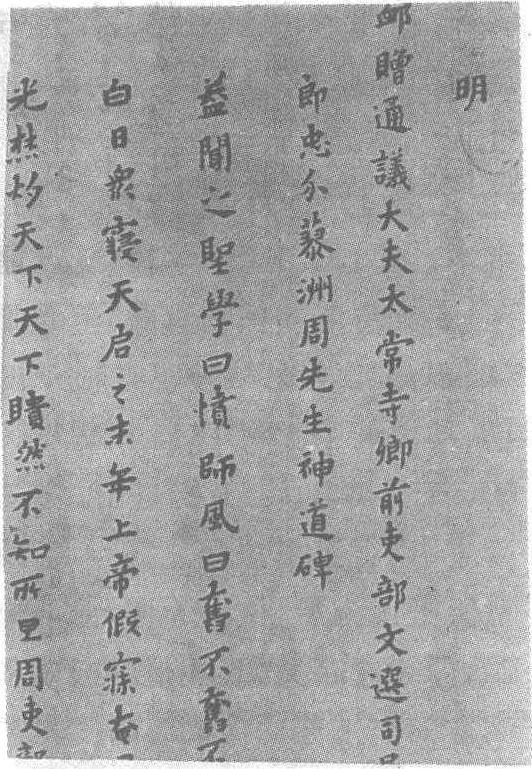 明
卹贈通議大夫太常寺卿前吏部文選司
郎忠介蓼洲周先生神道碑
蓋聞之聖學曰憤師風曰奮不奮不
白日衆寢天启之末年上帝假寐奄
光天下天下然不知所周吏部